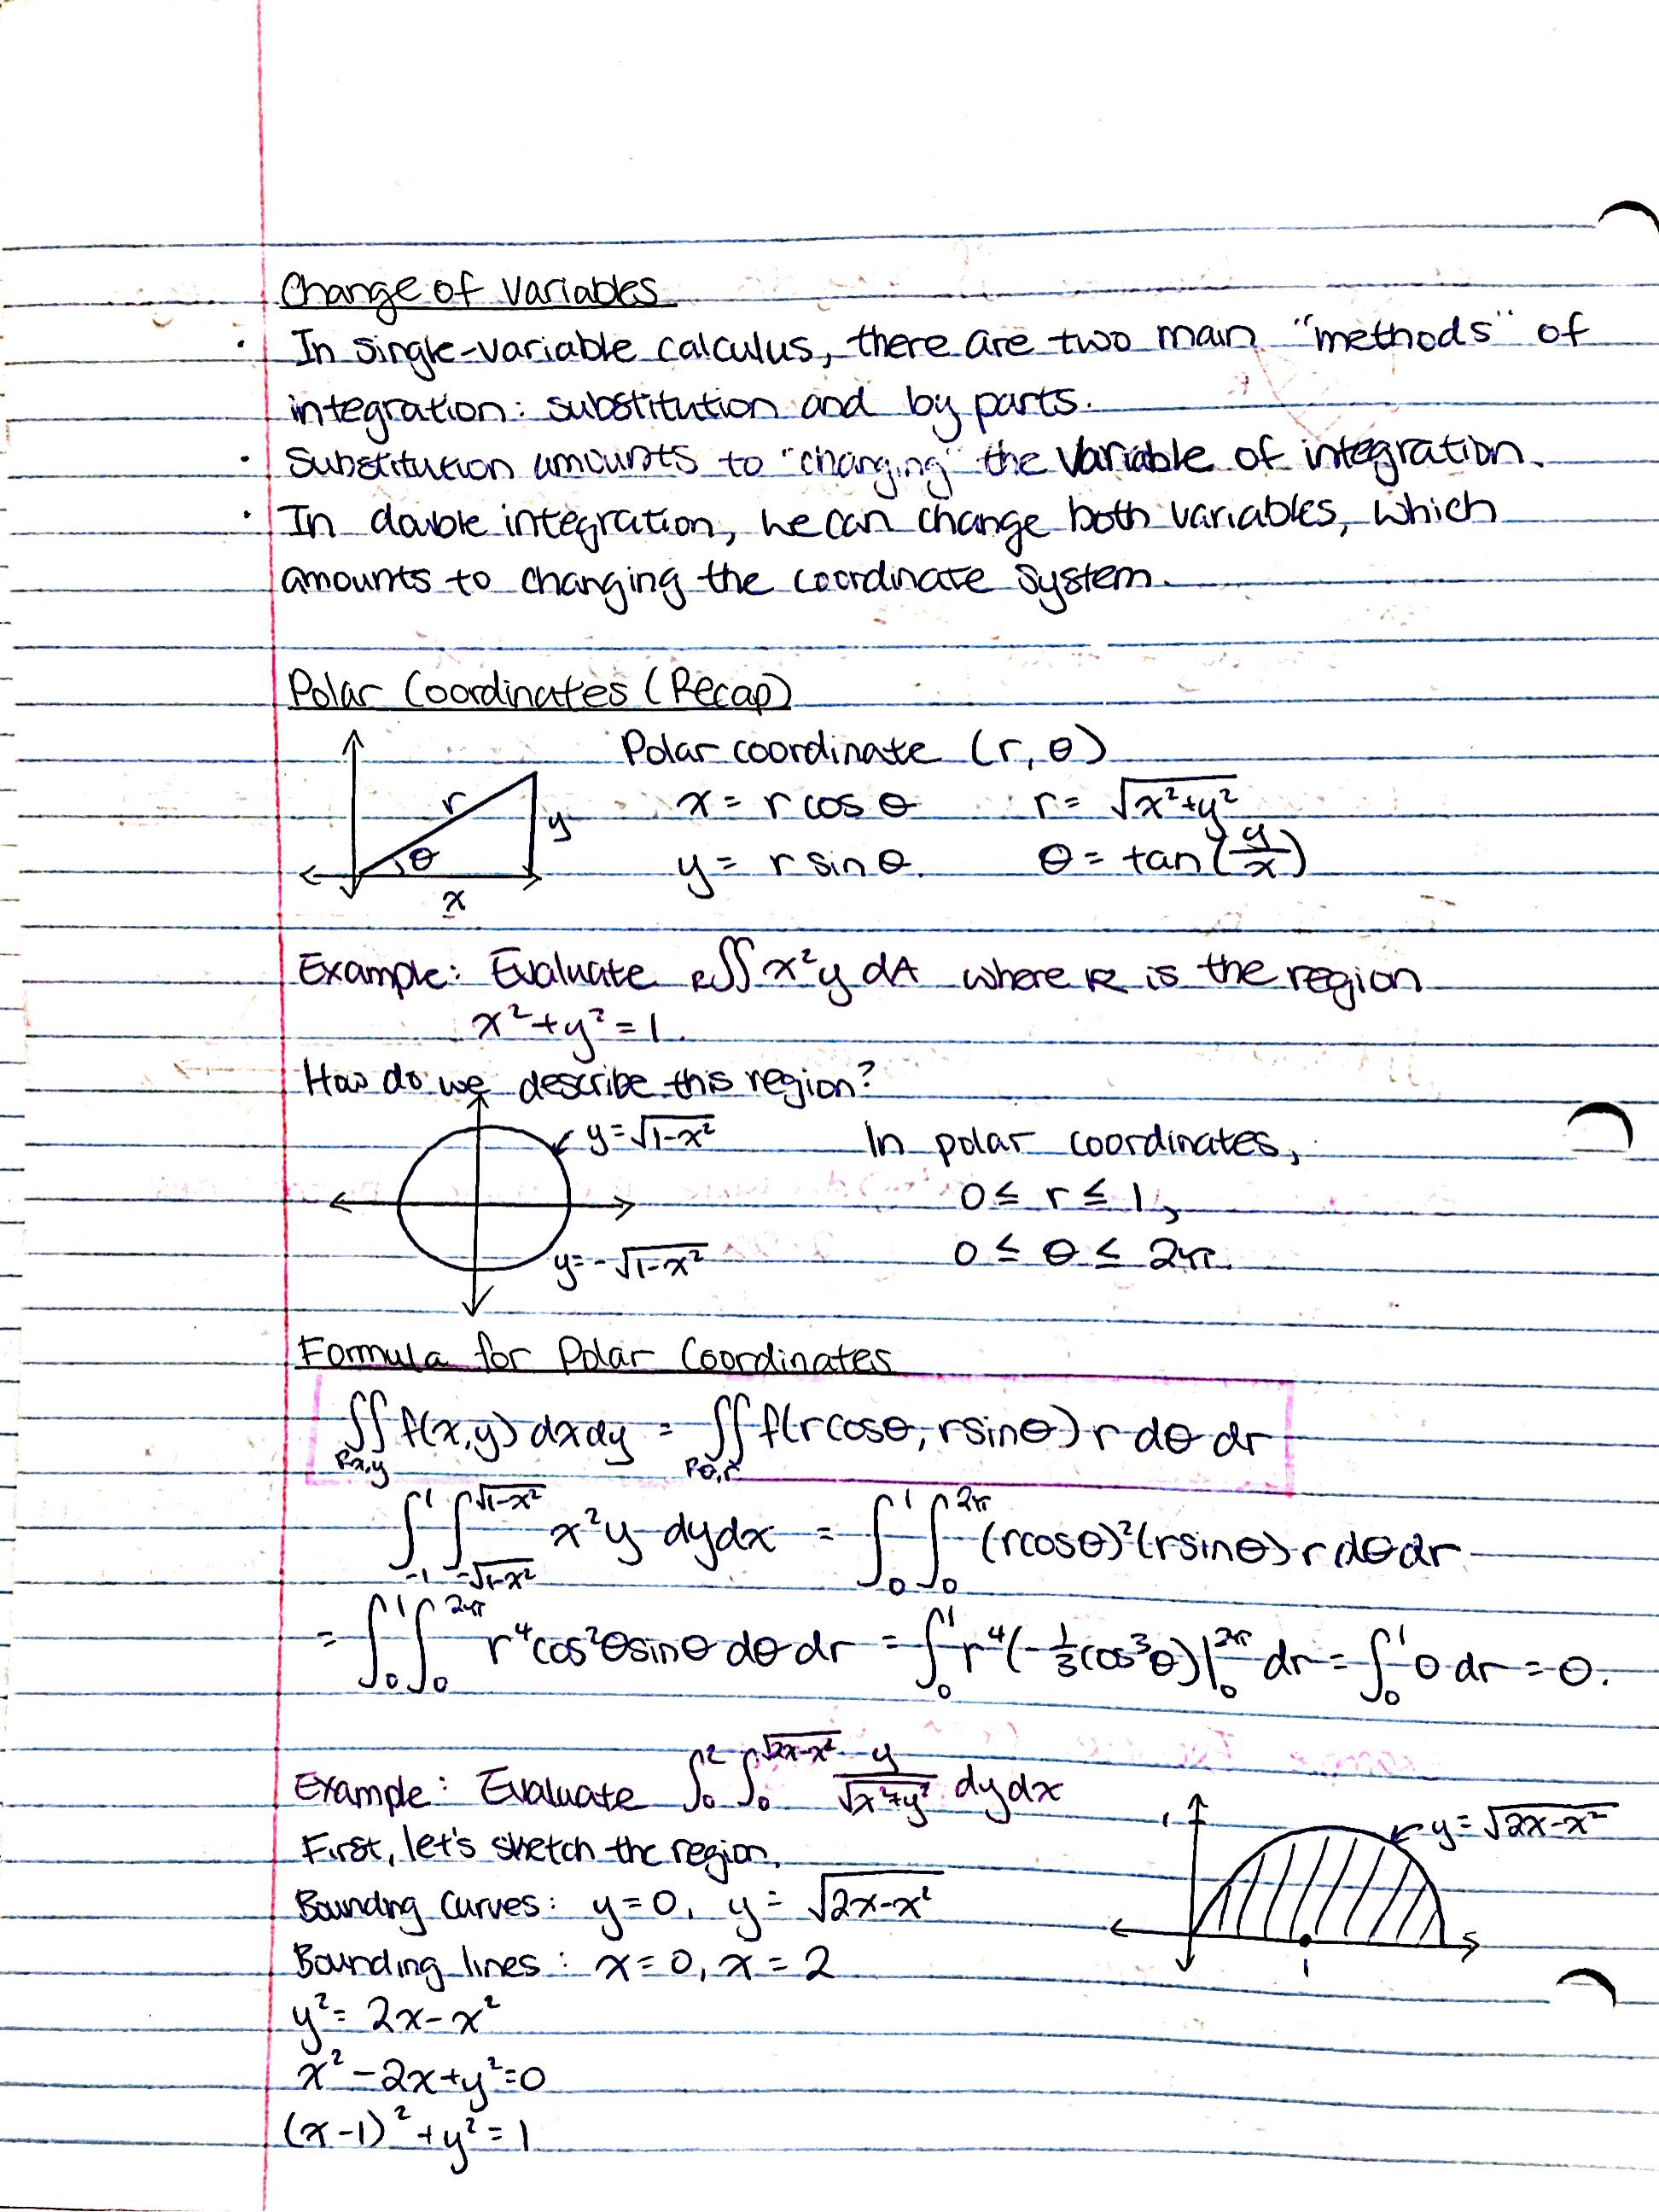 Change of Variables
· In single-variable calculus, there are two main "methods" of
integration: substitution and by parts.
· Substitution amounts to "changing" the variable of integration.
· In double integration, we can change both variables, which
amounts to changing the coordinate system.
Polar Coordinates (Recap)
Polar coordinate (r, θ)
r y θ x
x = r cos θ r = √(x²+y²)
y = r sin θ. θ = tan(y/x)
Example: Evaluate R∬ x²y dA where R is the region
x²+y²=1.
How do we describe this region?
y=√(1-x²) In polar coordinates,
0 ≤ r ≤ 1,
y=-√(1-x²) 0 ≤ θ ≤ 2π.
Formula for Polar Coordinates
∬_{Rx,y} f(x,y) dxdy = ∬_{Rθ,r} f(rcosθ, rsinθ) r dθ dr
∫_{-1}^{1} ∫_{-√(1-x²)}^{√(1-x²)} x²y dydx = ∫_0^1 ∫_0^{2π} (rcosθ)²(rsinθ) r dθ dr
= ∫_0^1 ∫_0^{2π} r⁴cos²θsinθ dθ dr = ∫_0^1 r⁴(-1/3 cos³θ)|_0^{2π} dr = ∫_0^1 0 dr = 0.
Example: Evaluate ∫_0^2 ∫_0^{√(2x-x²)} y/√(x²+y²) dydx
First, let's sketch the region.
1 y=√(2x-x²)
Bounding curves: y=0, y=√(2x-x²)
Bounding lines: x=0, x=2
1
y²= 2x-x²
x²-2x+y²=0
(x-1)²+y²=1